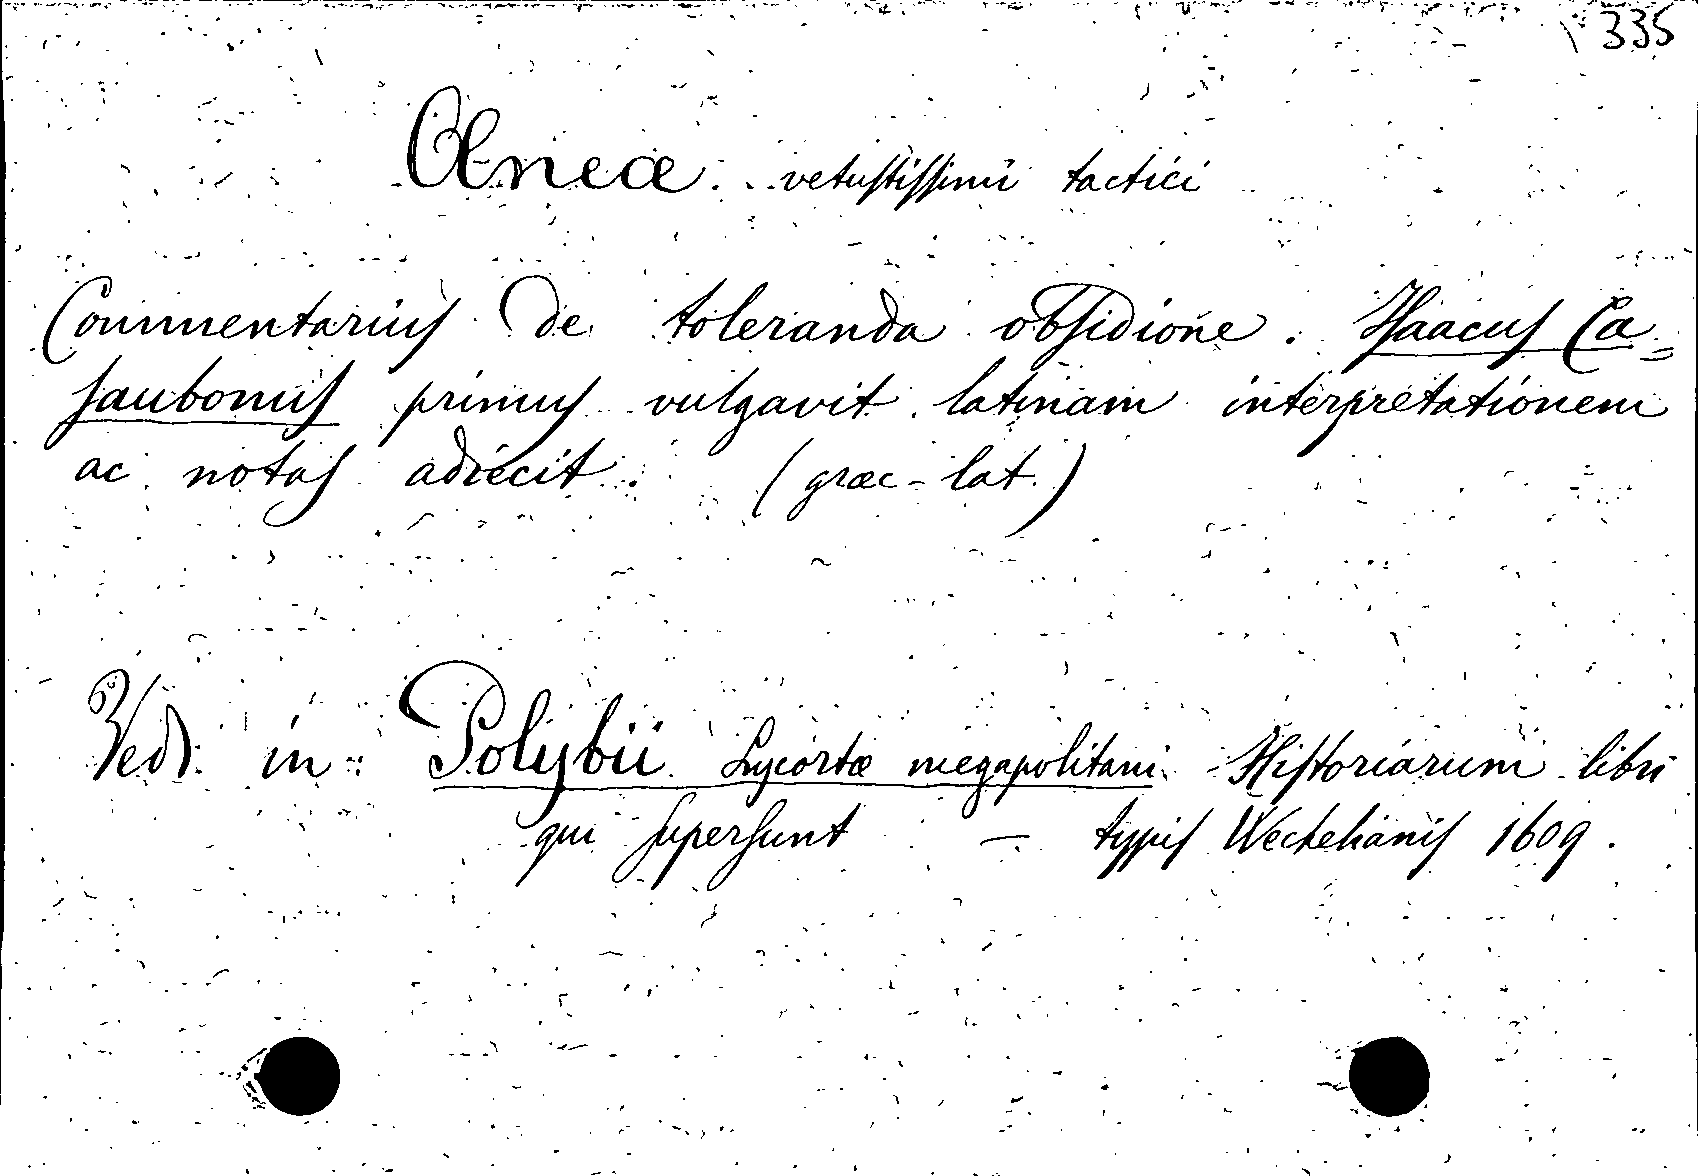 335
Æneæ vetustissimi tactici
Commentarius de toleranda obsidione. Isaacus Ca=
saubonus primus vulgavit latinam interpretationem
ac notas adiecit. (græc-lat.)
Vedi in: Polybii Lycortæ megapolitani Historiarum libri
qui supersunt — typis Wechelianis 1609.